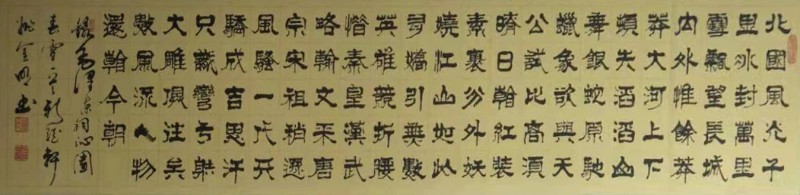 北國風光千
里冰封萬里
雪飄望長城
内外惟餘莽
莽大河上下
頓失滔滔山
舞銀蛇原馳
蠟象欲與天
公試比高須
晴日看紅裝
素裹分外妖
嬈江山如此
多嬌引無數
英雄競折腰
惜秦皇漢武
略輸文采唐
宗宋祖稍遜
風騷一代天
驕成吉思汗
只識彎弓射
大雕俱往矣
數風流人物
還看今朝
錄毛澤東詞沁園
春雪